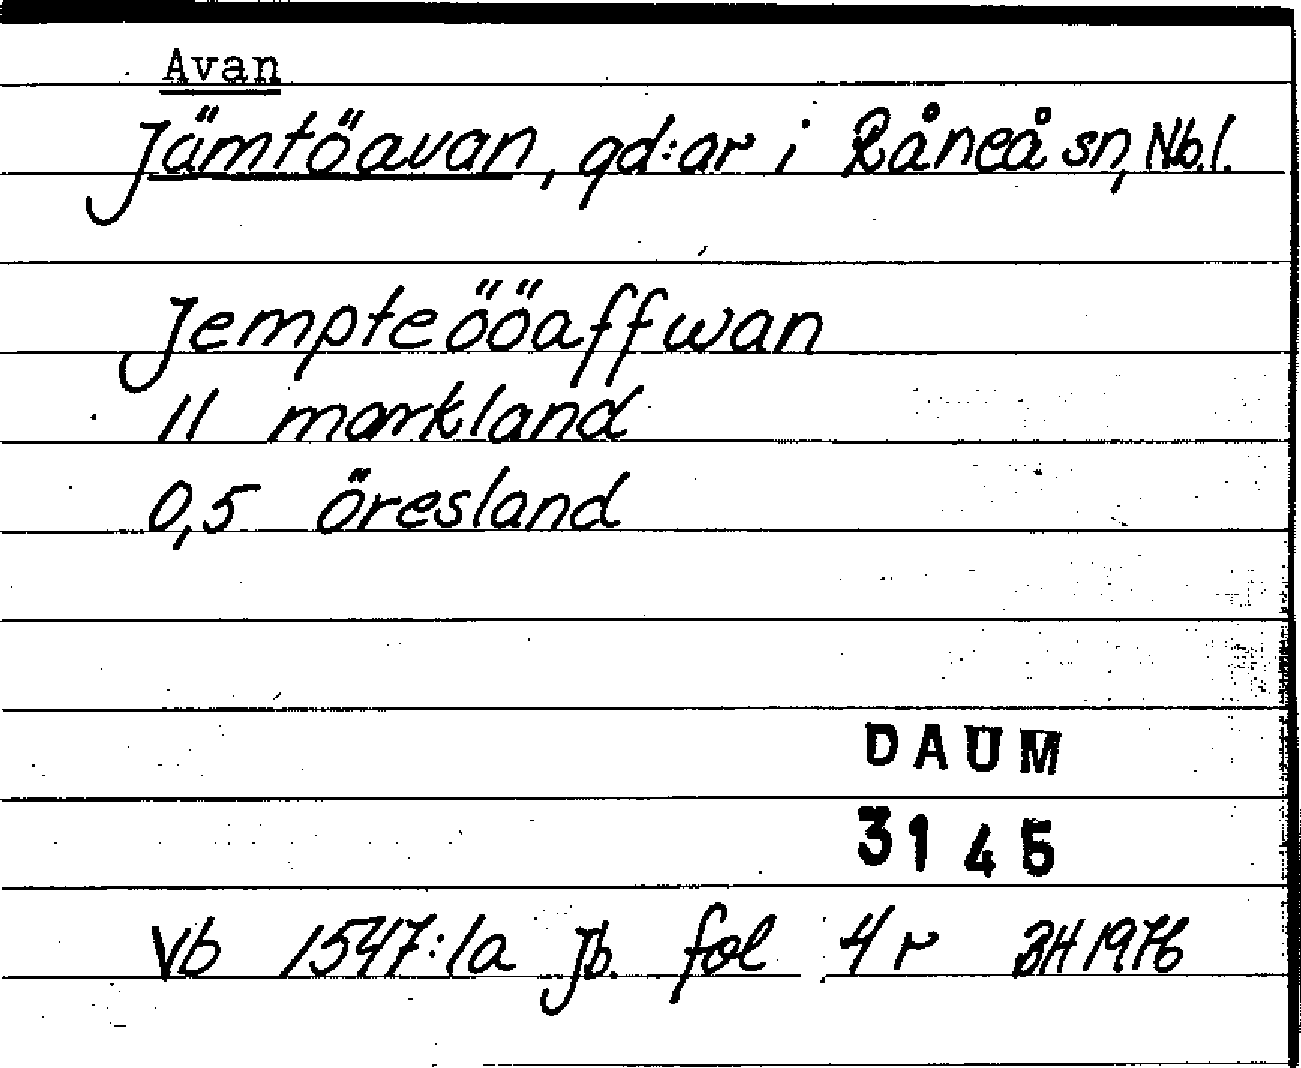 Avan
Jämtöavan, gd:ar i Råneå sn, Nb.l.
Jempteööaffwan
11 markland
0,5 öresland
DAUM
3145
Vb 1547:1a jb. fol 4r BH 1976